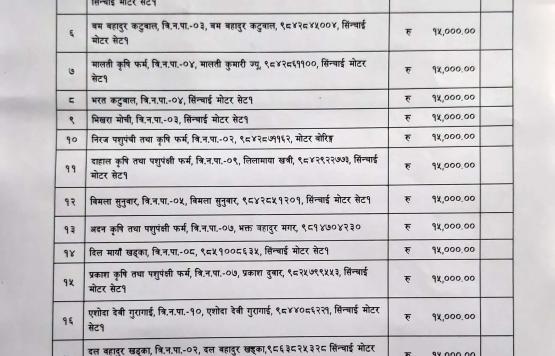 सिंन्चाई मोटर सेट१
६ बम बहादुर कटुवाल, त्रि.न.पा.-०३, बम बहादुर कटुवाल, ९८४२८४५००४, सिंन्चाई रु १५,०००.००
मोटर सेट१
७ मालती कृषि फर्म, त्रि.न.पा.-०४, मालती कुमारी ज्यू, ९८४२८६११००, सिंन्चाई मोटर रु १५,०००.००
सेट१
८ भरत कटुवाल, त्रि.न.पा.-०४, सिंन्चाई मोटर सेट१ रु १५,०००.००
९ भिखरा मोची, त्रि.न.पा.-०३, सिंन्चाई मोटर सेट१ रु १५,०००.००
१० निरज पशुपंक्षी तथा कृषि फर्म, त्रि.न.पा.-०२, ९८४२८७११६२, मोटर बोरिङ रु १५,०००.००
११ दाहाल कृषि तथा पशुपंक्षी फर्म, त्रि.न.पा.-०९, लिलामाया खत्री, ९८४२९२२७७३, सिंन्चाई रु १५,०००.००
मोटर सेट१
१२ बिमला सुनुवार, त्रि.न.पा.-०५, बिमला सुनुवार, ९८४२८५१२०१, सिंन्चाई मोटर सेट१ रु १५,०००.००
१३ अदन कृषि तथा पशुपंक्षी फर्म, त्रि.न.पा.-०७, भक्त बहादुर मगर, ९८१४७०४२३० रु १५,०००.००
१४ दिल मायाँ खड्का, त्रि.न.पा.-०८, ९८५१००८६३५, सिंन्चाई मोटर सेट१ रु १५,०००.००
१५ प्रकाश कृषि तथा पशुपंक्षी फर्म, त्रि.न.पा.-०७, प्रकाश दुवार, ९८२५७९९५५३, सिंन्चाई रु १५,०००.००
मोटर सेट१
१६ एशोदा देवी गुरागाई, त्रि.न.पा.-१०, एशोदा देवी गुरागाई, ९८४४०८६२२१, सिंन्चाई मोटर रु १५,०००.००
सेट१
दल बहादुर खड्का, त्रि.न.पा.-०२, दल बहादुर खड्का,९८६३८२५३२८ सिंन्चाई मोटर रु १५,०००.००